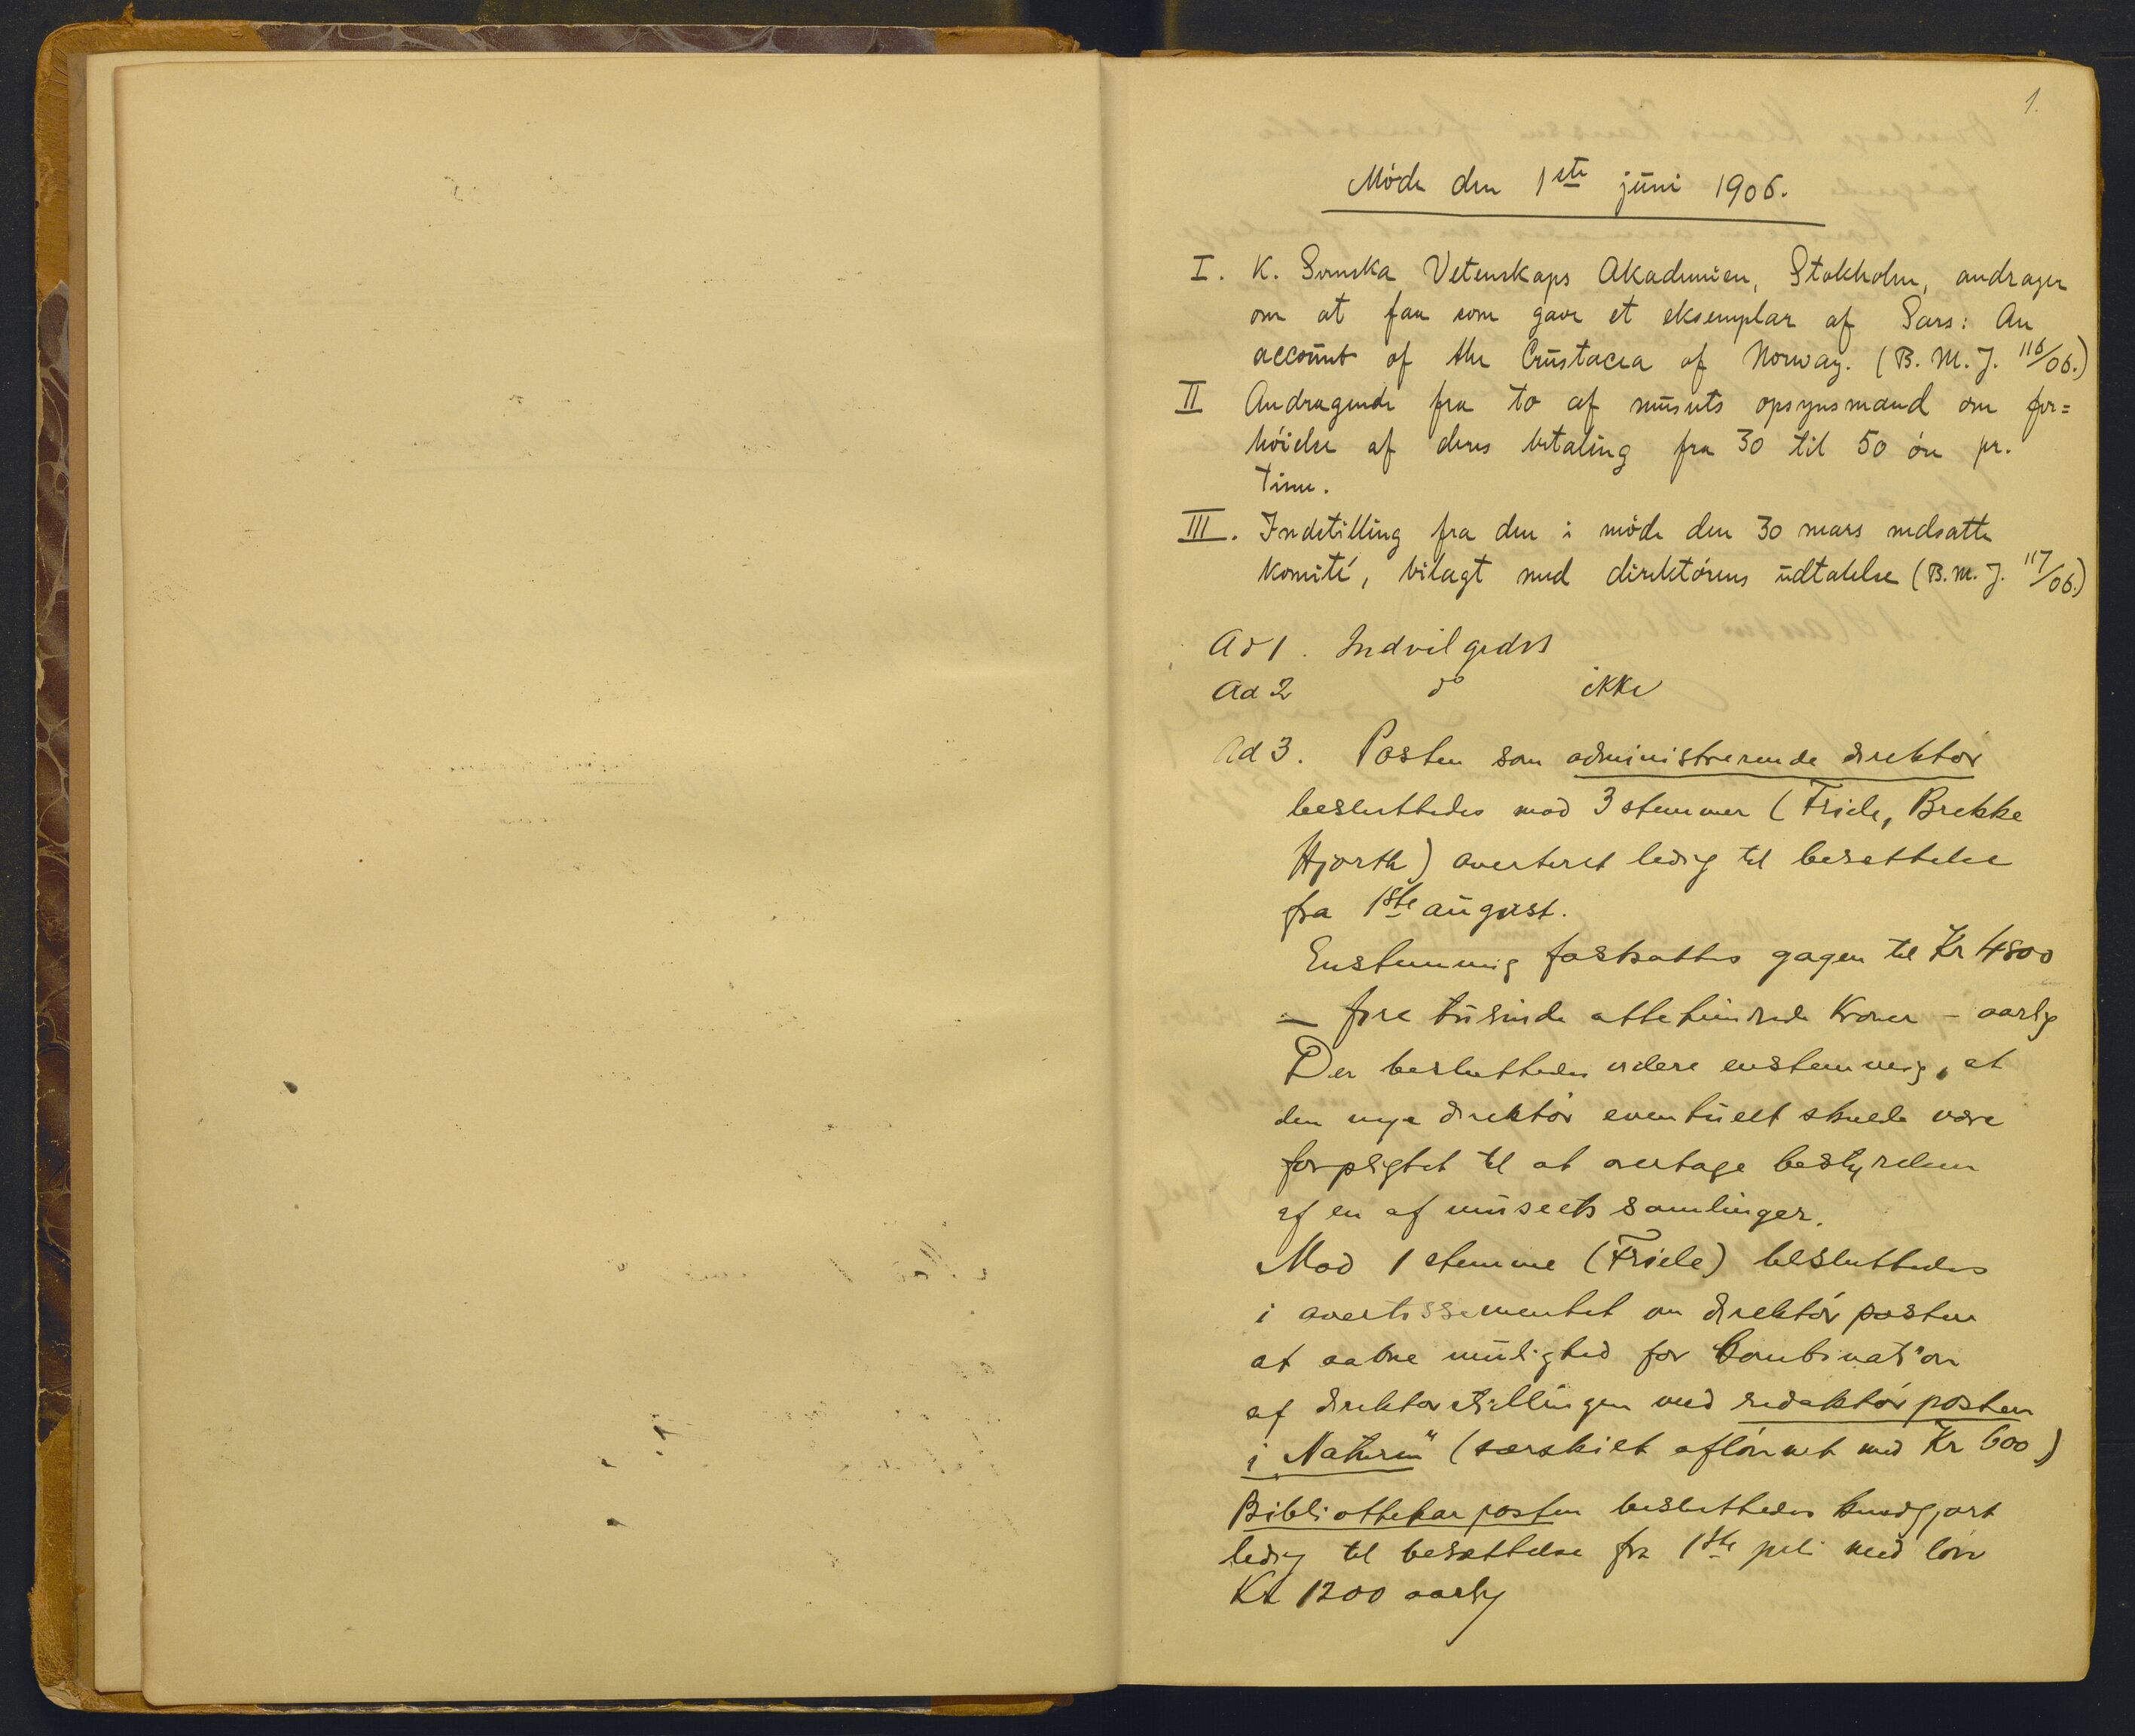 1.
Møde den 1ste juni 1906.
I. K. Svenska Vetenskaps Akademien, Stokholm, andrager
om at faa som gave et eksemplar af Sars: An
account of the Crustacea of Norway. (B. M. J. 116/06.)
II Andragende fra to af museets opsynsmænd om for=
høielse af deres betaling fra 30 til 50 øre pr.
time.
III. Indstilling fra den i møde den 30 mars nedsatte
komité, bilagt med direktørens udtalelse (B. M. J. 117/06.)
Ad 1. Indvilgedes
Ad 2 do ikke
Ad 3. Posten som administrerende direktør
besluttedes mod 3 stemmer (Friele, Brekke
Hjorth) averteret ledig til besættelse
fra 1ste august.
Enstemmig fastsattes gagen til Kr 4800
— fire tusinde attehundrede Kroner – aarlig
Der besluttedes videre enstemmig, at
den nye direktør eventuelt skulde være
forpligtet til at overtage bestyrelsen
af en af museets samlinger.
Mod 1 stemme (Friele) besluttedes
i avertissementet om direktørposten
at aabne mulighed for Combination
af direktørstillingen med redaktørposten
i „Naturen" (særskilt aflønnet med Kr 600)
Bibliothekarposten besluttedes kundgjort
ledig til besættelse fra 1ste juli med løn
Kr 1200 aarlig